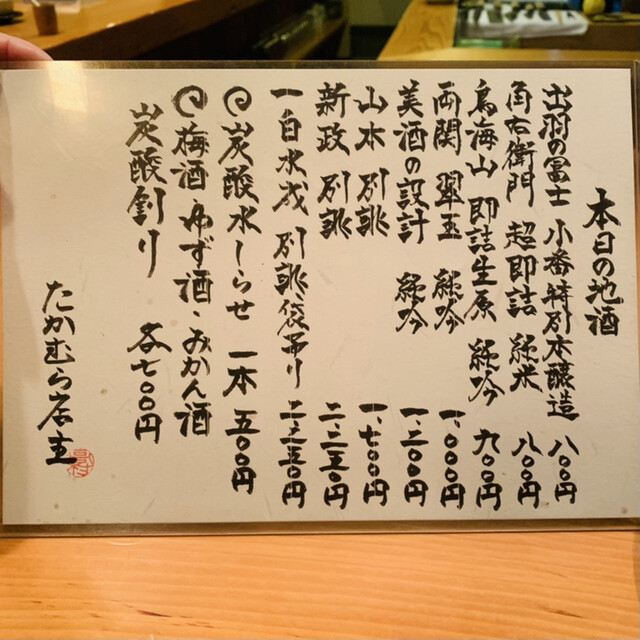 本日の地酒
出羽の冨士 小番特別本醸造 八〇〇円
角右衛門 超即詰 純米 八〇〇円
鳥海山 即詰生原 純吟 九〇〇円
両関 翠玉 純吟 一、〇〇〇円
美酒の設計 純吟 一、二〇〇円
山本 別誂 一、七〇〇円
新政 別誂 二、二五〇円
一白水成 別誂・袋吊り 二、二五〇円
炭酸水しらせ 一本 五〇〇円
梅酒・ゆず酒・みかん酒
炭酸割り 各七〇〇円
たかむら店主